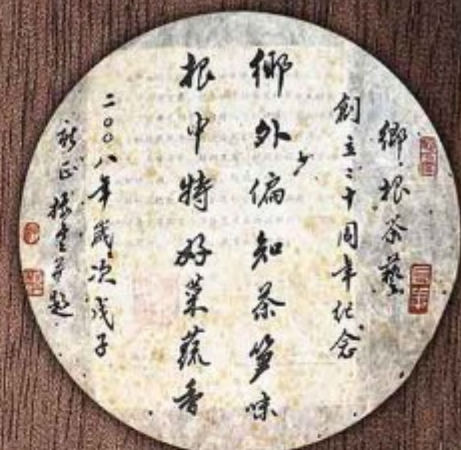 鄉根茶藝
創立二十周年纪念
鄉外偏知茶笋味
少
根中特好菜蔬香
二〇〇八年歲次戊子